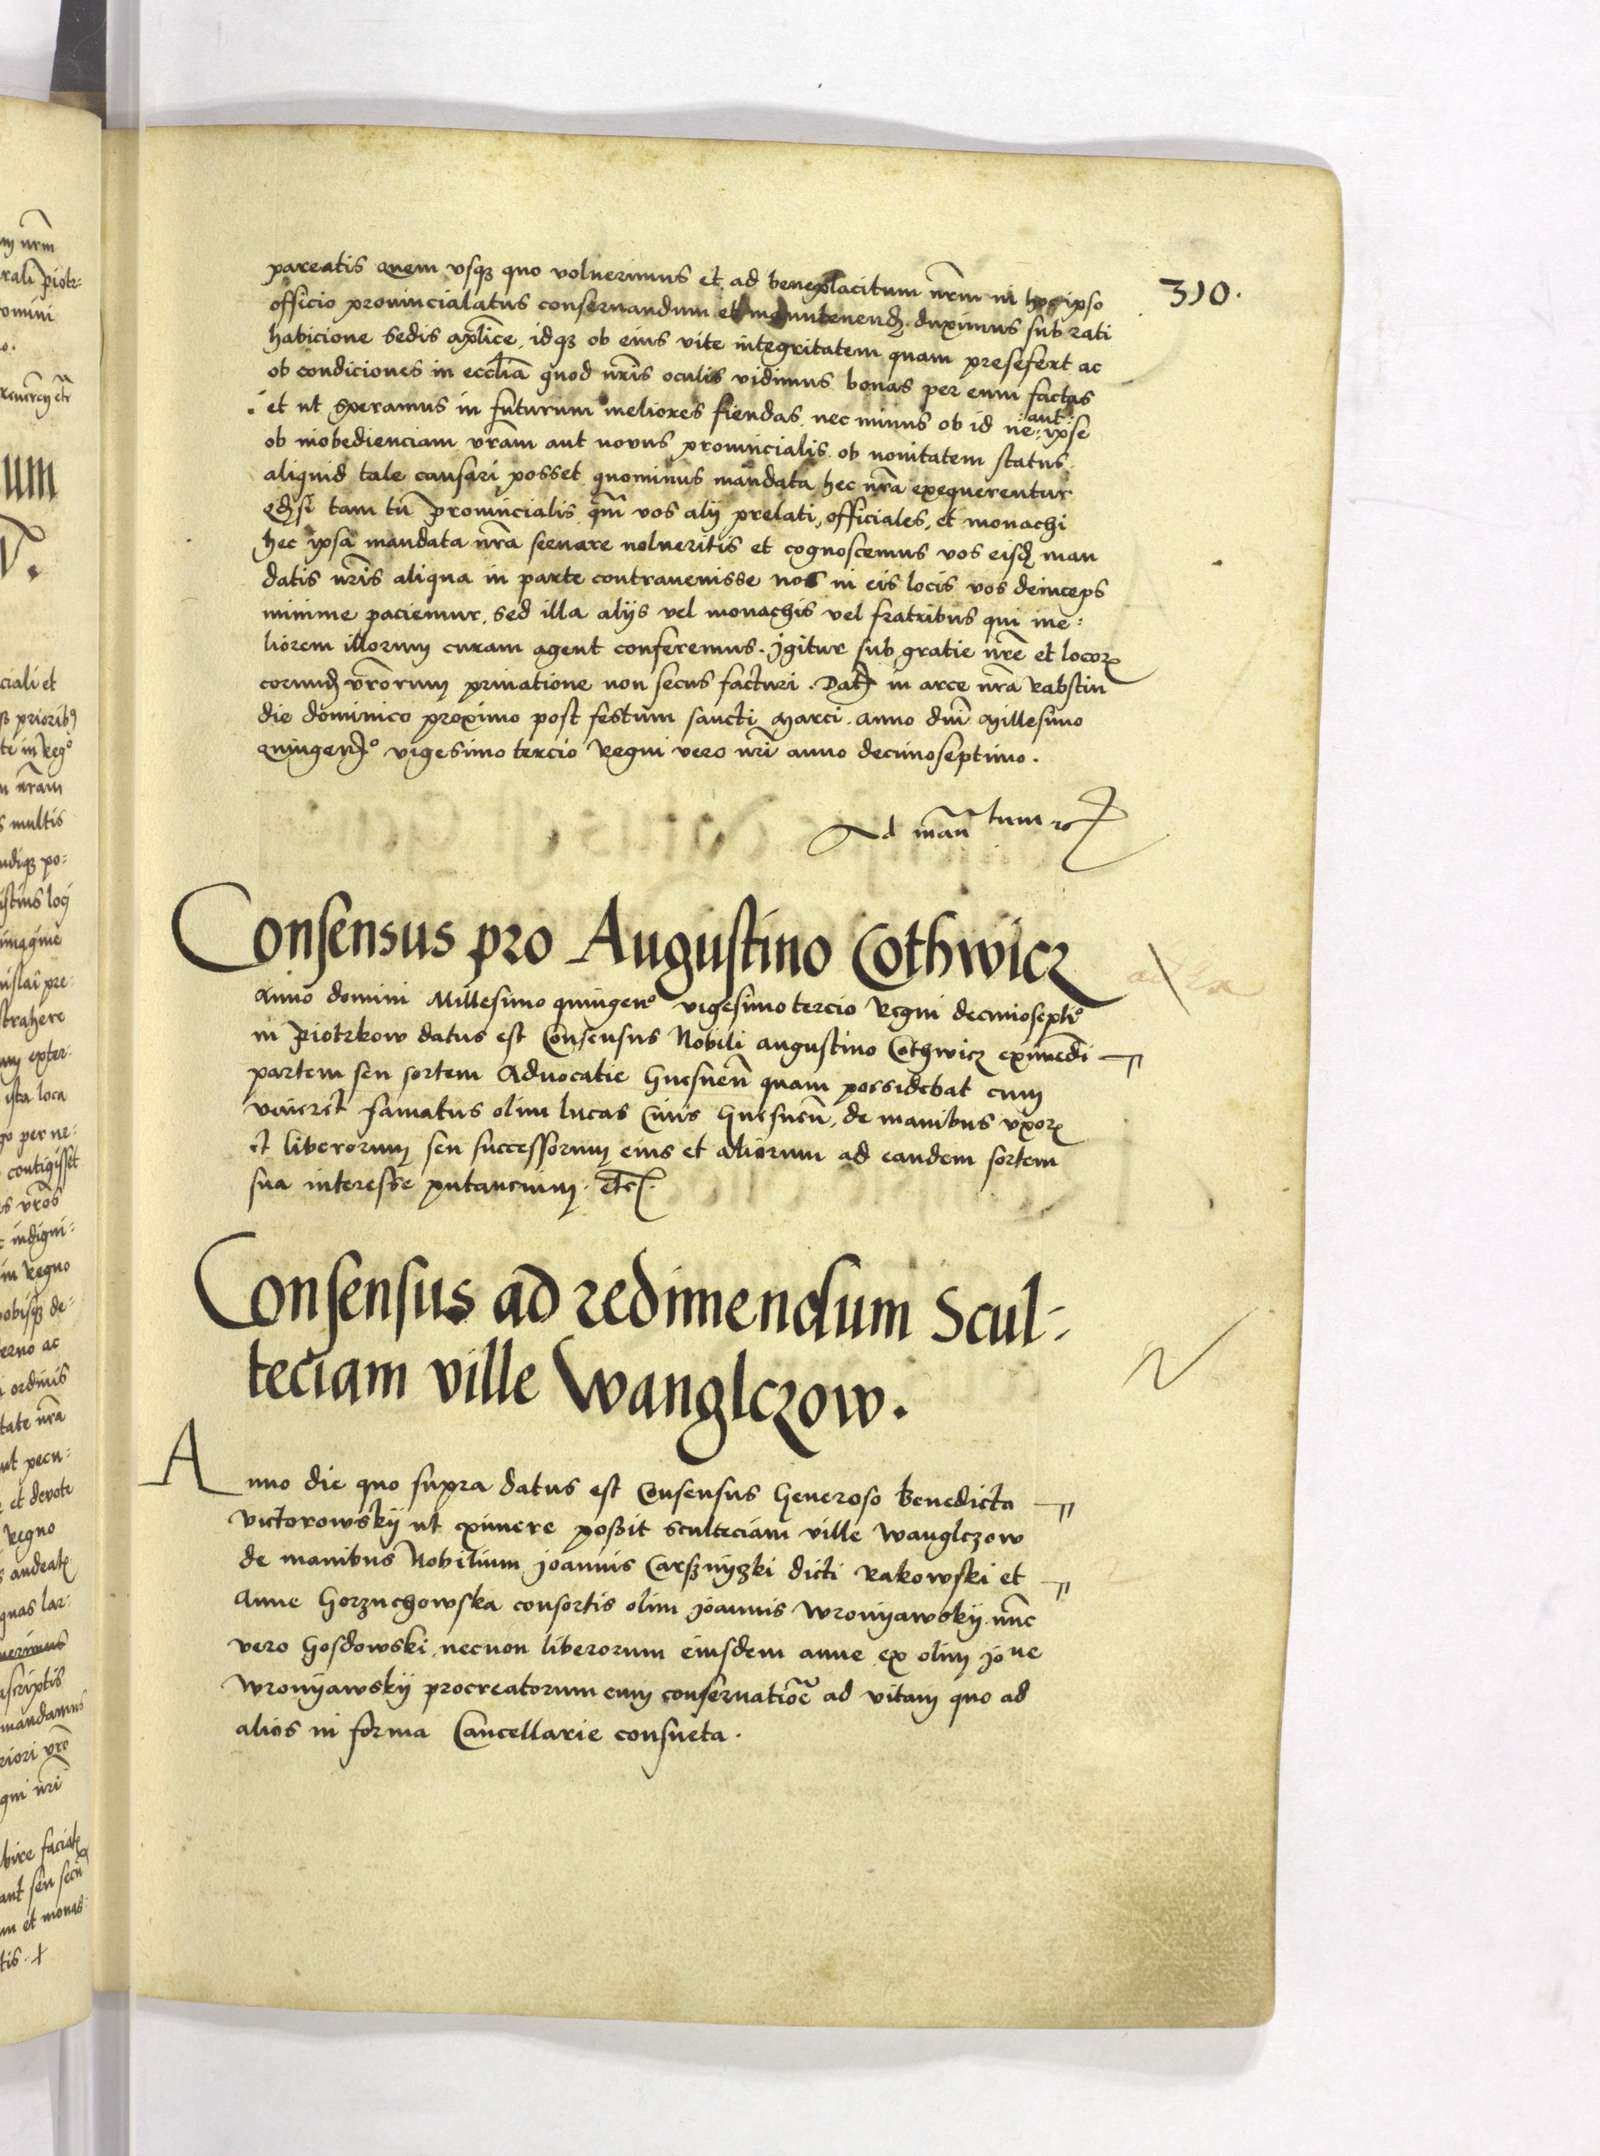 310.
pareatis quem vsqȝ quo voluerimus et ad beneplacitum nr̄m in hoc ipso
officio prouincialatus conseruandum et manutenendȝ duximus sub rati
habicione sedis apl̄ice idqȝ ob eius vite integritatem quam presefert ac
ob condiciones in eccl̄ia quod nr̄is oculis vidimus bonas per eum factas
et ut speramus in futurum meliores fiendas nec minus ob id ne aut ipse
ob inobedienciam vr̄am aut nouus prouincialis ob nouitatem status
aliquid tale causari posset quominus mandata hec nr̄a exequerentur
qđ si tam tu prouincialis qm̄ vos alij prelati, officiales, et monachi
hec ipsa mandata nr̄a seruare nolueritis et cognoscemus vos eisdȝ man
datis nr̄is aliqua in parte contrauenisse nos in eis locis vos deinceps
minime paciemur, sed illa alijs vel monachis vel fratribus qui me:
liorem illorum curam agent conferemus. Igitur sub gratie nr̄e et locorꝝ
eorundȝ vr̄orum priuatione non secus facturi. Dat in arce nr̄a Rabstin
die dominico proximo post festum sancti Marci. Anno dni Millesimo
quingentº vigesimo tercio Regni vero nr̄i anno decimoseptimo.
Ad man tum
Consensus pro Augustino Cothwicz
Anno domini Millesimo quingenº vigesimo tercio Regni decimoseptiº
in Piotrkow datus est Consensus Nobili Augustino Cothwicz eximendi
partem seu sortem Aduocatie Gnesnen̄ quam possidebat cum
viueret famatus olim lucas Ciuis Gnesnen̄, de manibus vxorꝭ
et liberorum seu successorum eius et aliorum ad eandem sortem
sua interesse putancium. etc.
Consensus ad redimendum Scul-
teciam ville Wanglczow.
Anno die quo supra datus est Consensus Generoso Benedicto
Victorowskij ut eximere possit sculteciam ville Wanglczow
de manibus Nobilium Joannis Carsznyczki dicti Rakowski et
Anne Gorzuchowska consortis olim Joannis Wronyawskij nunc
vero Gosdowski, necnon liberorum eiusdem anne ex olim Jo ne
Wronyawskij procreatorum cum conseruatioē ad vitam quo ad
alios in forma Cancellarie consueta.